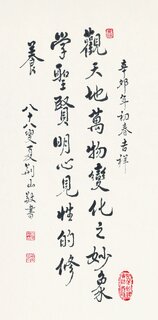 辛卯年初春吉祥
觀天地萬物變化之妙象
學聖賢明心見性的修
養
八十八叟夏荊山敬書